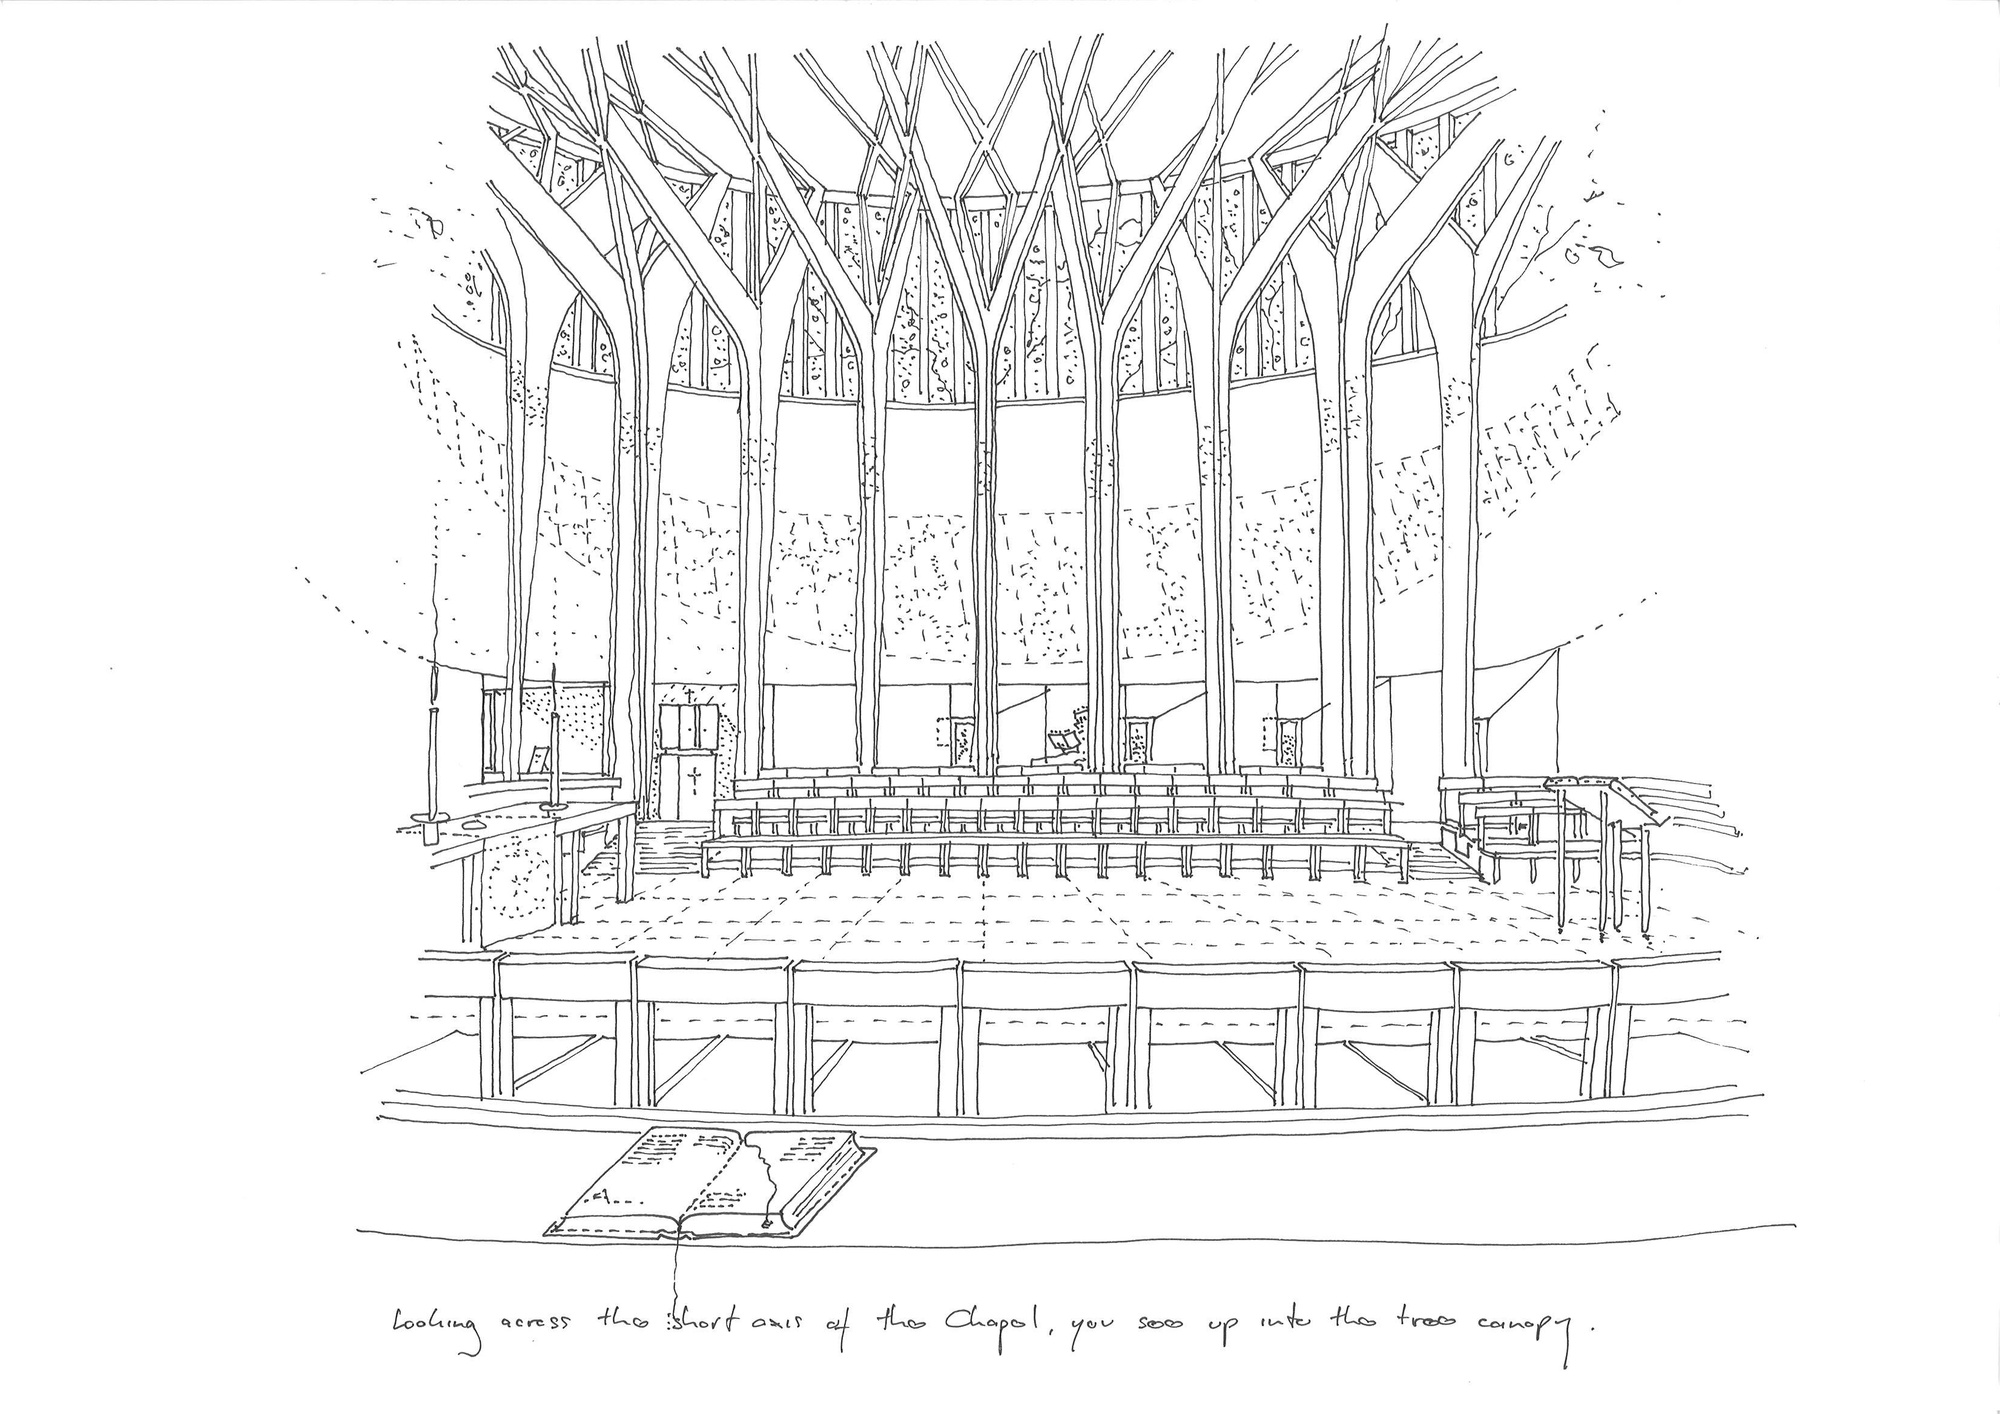 Looking across the short axis of the Chapel, you see up into the tree canopy.